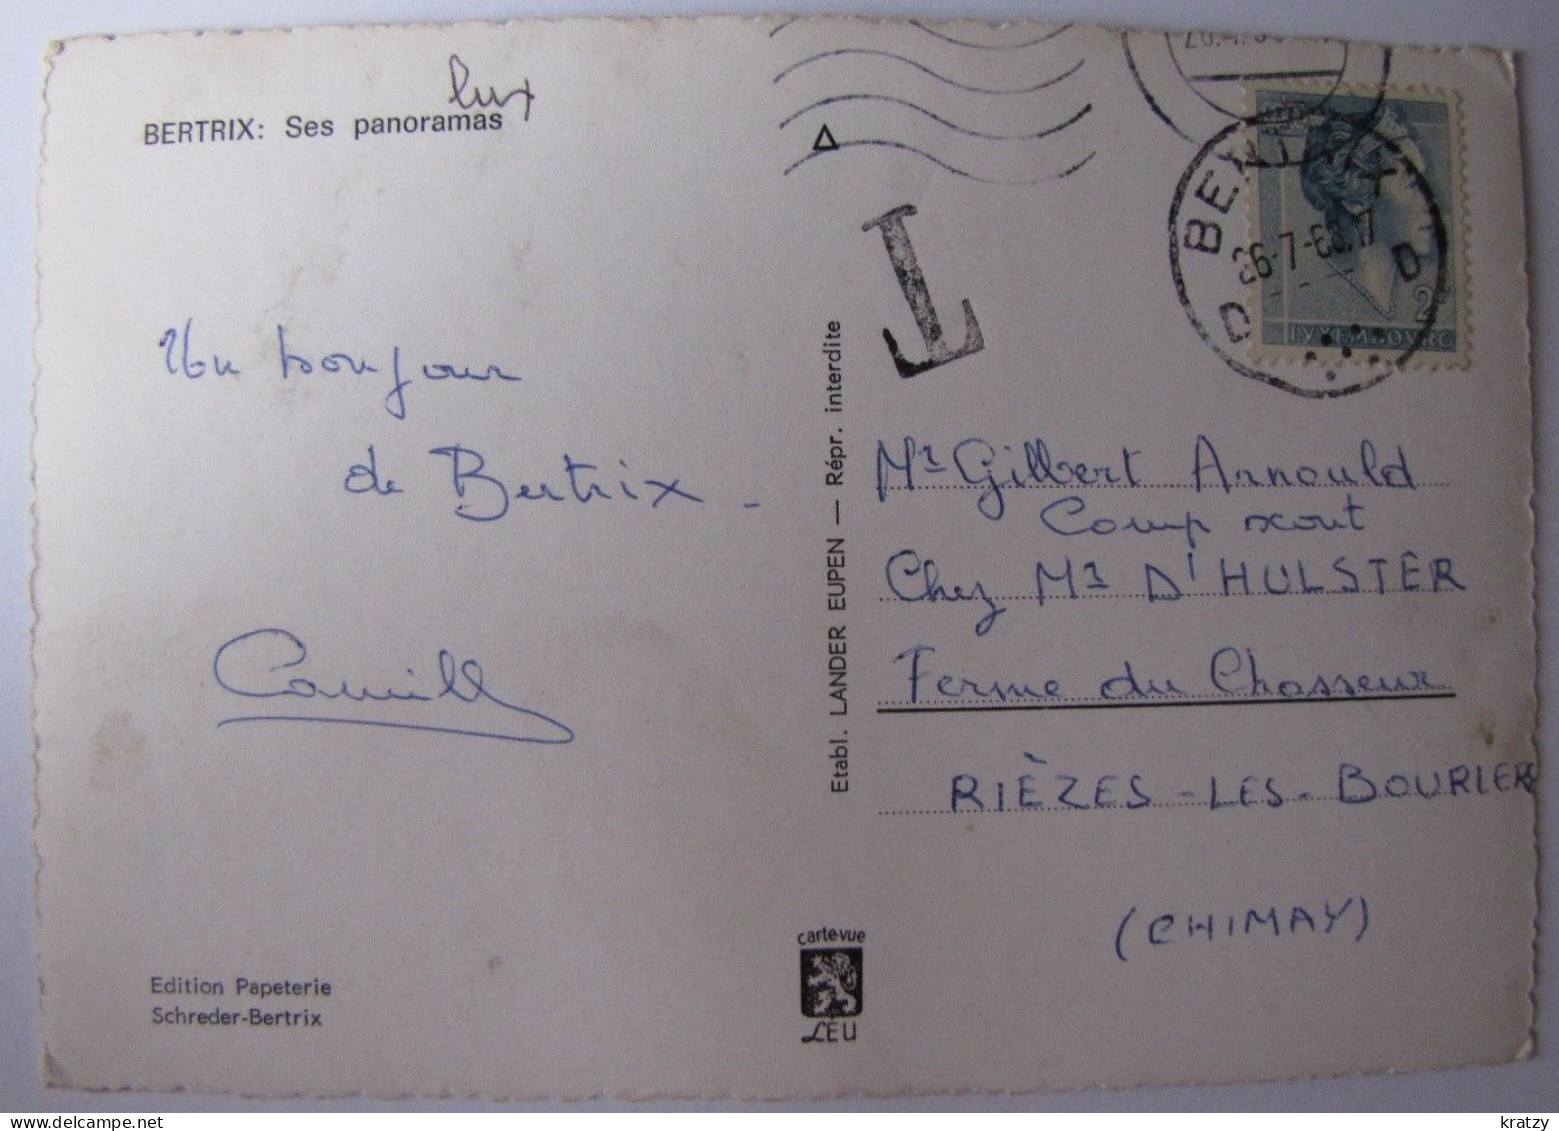 lux
BERTRIX: Ses panoramas
Un bonjour
de Bertrix -
Camille
Edition Papeterie
Schreder-Bertrix
Etabl. LANDER EUPEN — Répr. interdite
carte-vue
LEU
T
BERTRIX
26-7-68.17
D D
2F
LVXEMBOVRG
Mr Gilbert Arnould
Camp scout
Chez Mr D'HULSTER
Ferme du Chasseur
RIÈZES-LES-BOURIERS
(CHIMAY)
www.delcampe.net
kratzy